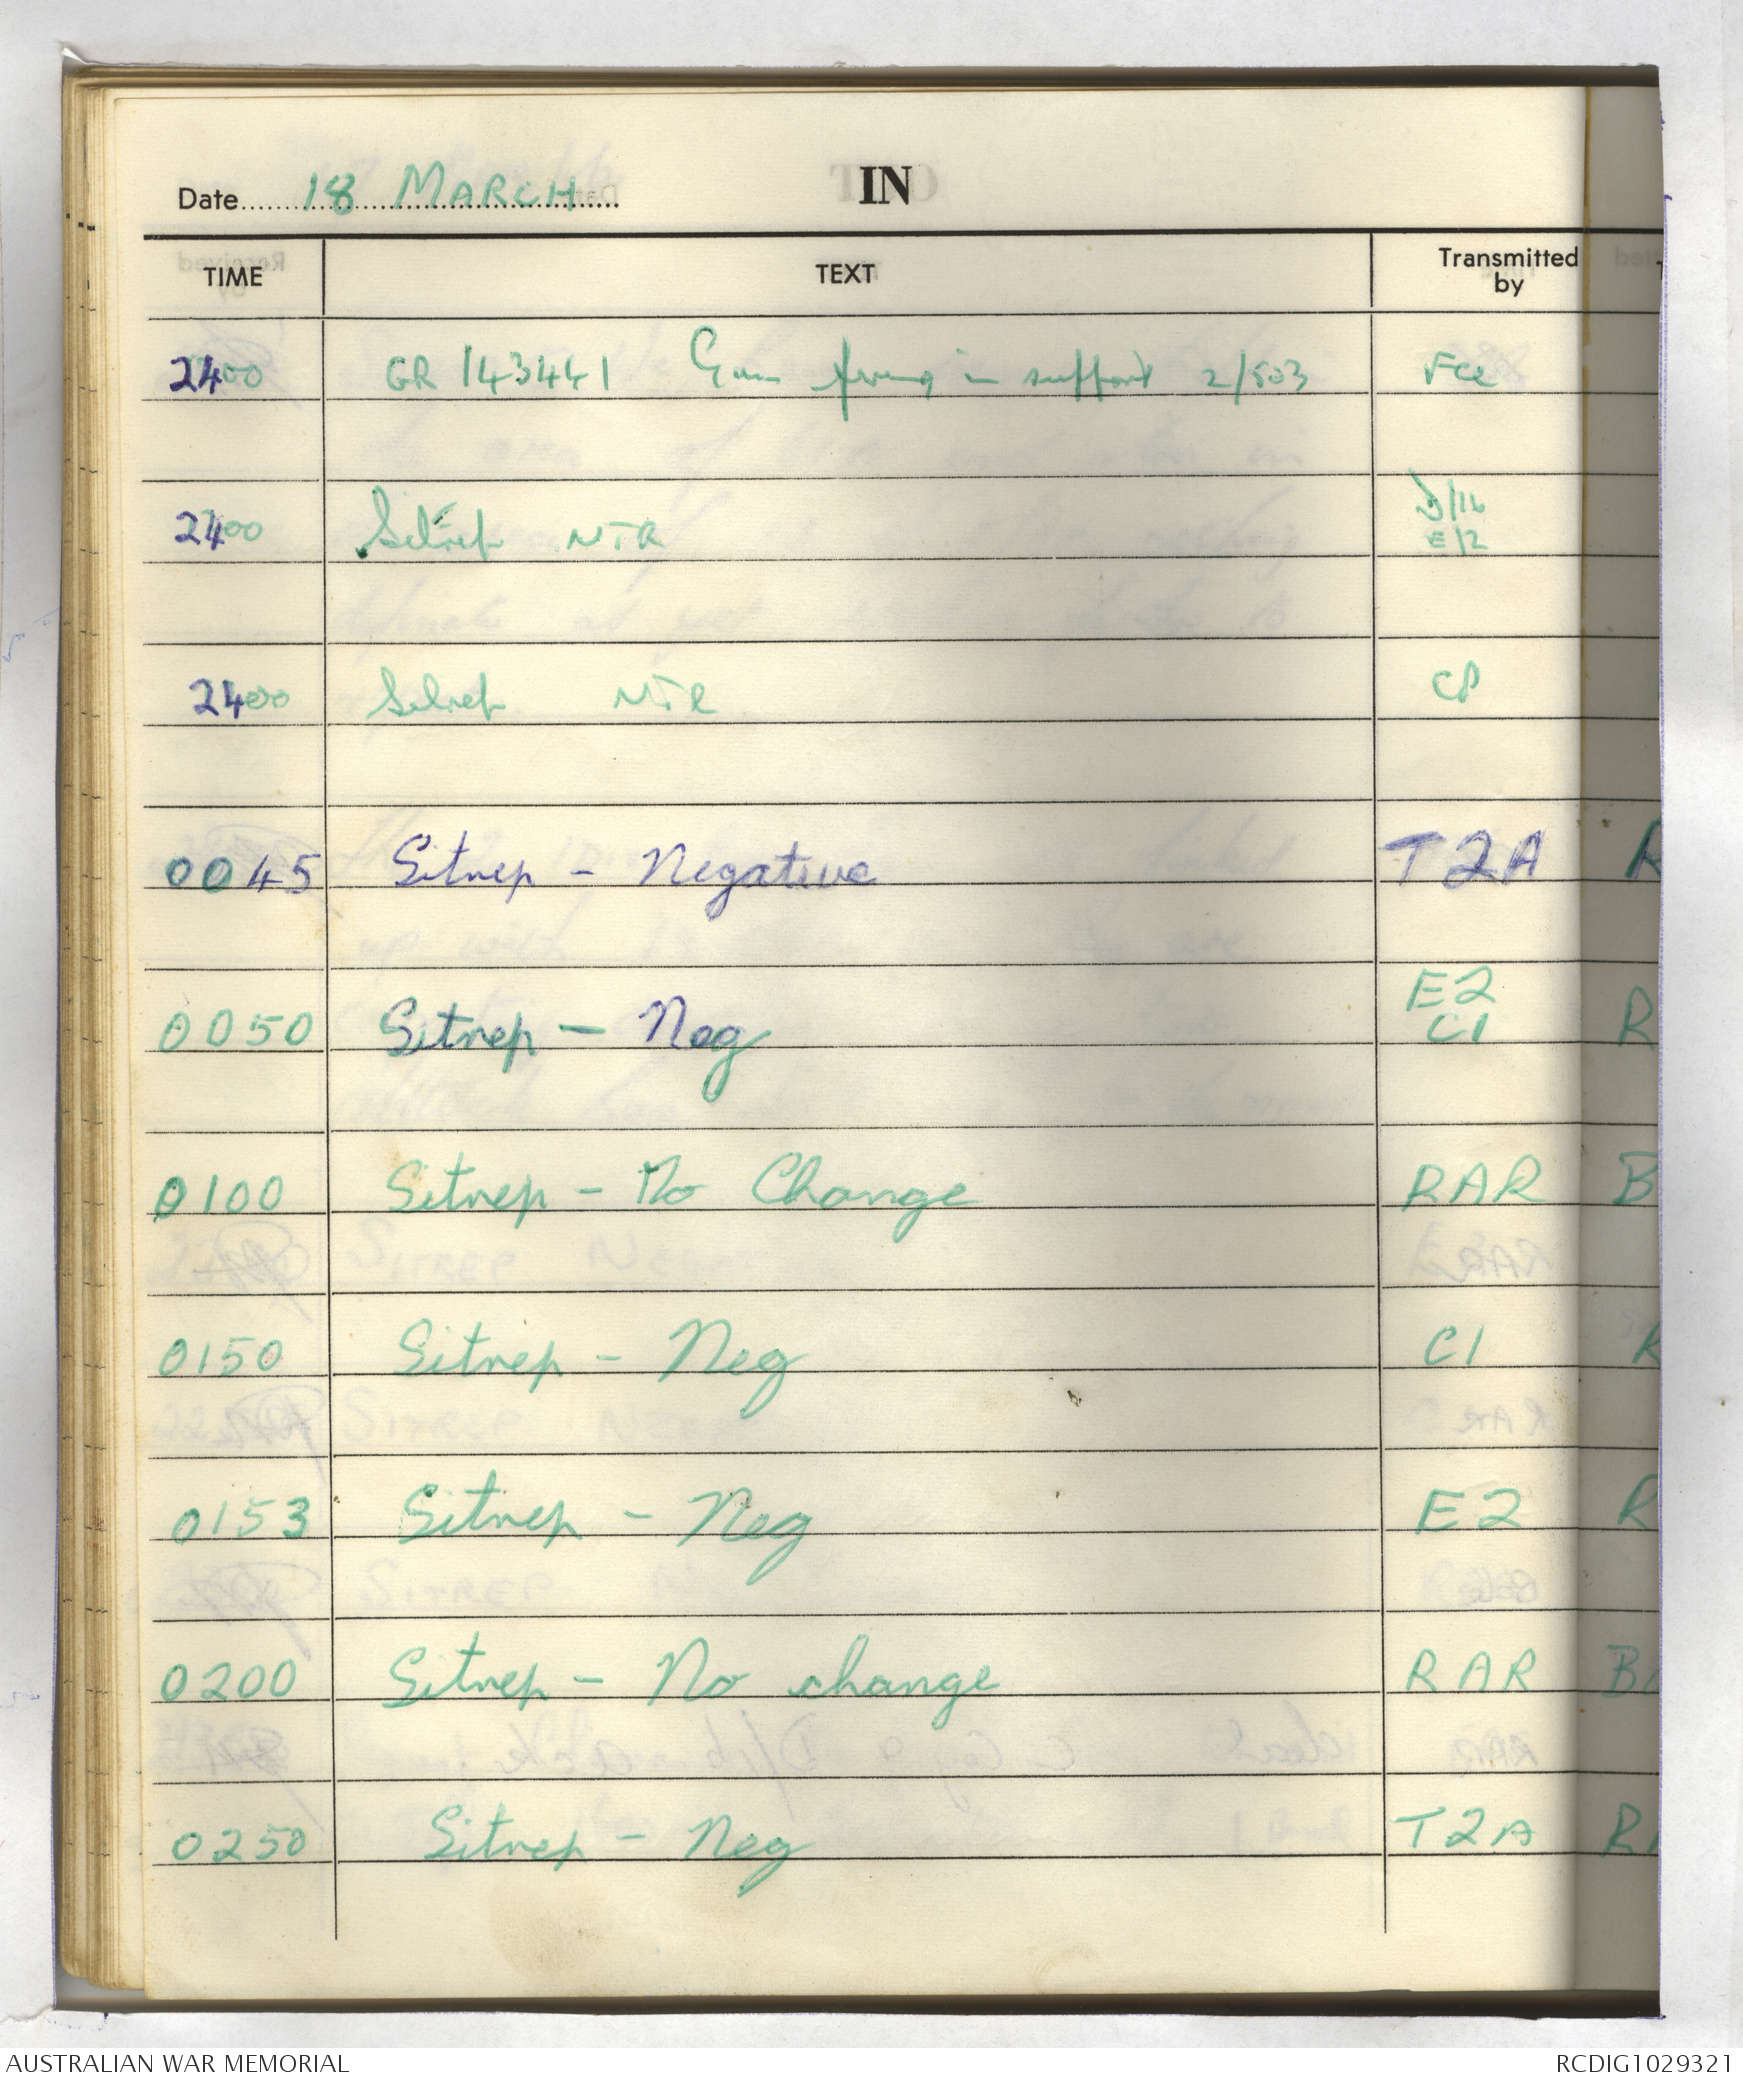 Date 18 MARCH IN
TIME TEXT Transmitted by
2400 GR 143441 Gun firing in support 2/503 FCE
2400 Sitrep NTR D/16
E/2
2400 Sitrep NTR CP
0045 Sitrep - Negative T2A R
0050 Sitrep - Neg E2
C1 R
0100 Sitrep - No Change RAR B
0150 Sitrep - Neg C1 R
0153 Sitrep - Neg E2 R
0200 Sitrep - No change RAR B
0250 Sitrep - Neg T2A R
AUSTRALIAN WAR MEMORIAL RCDIG1029321